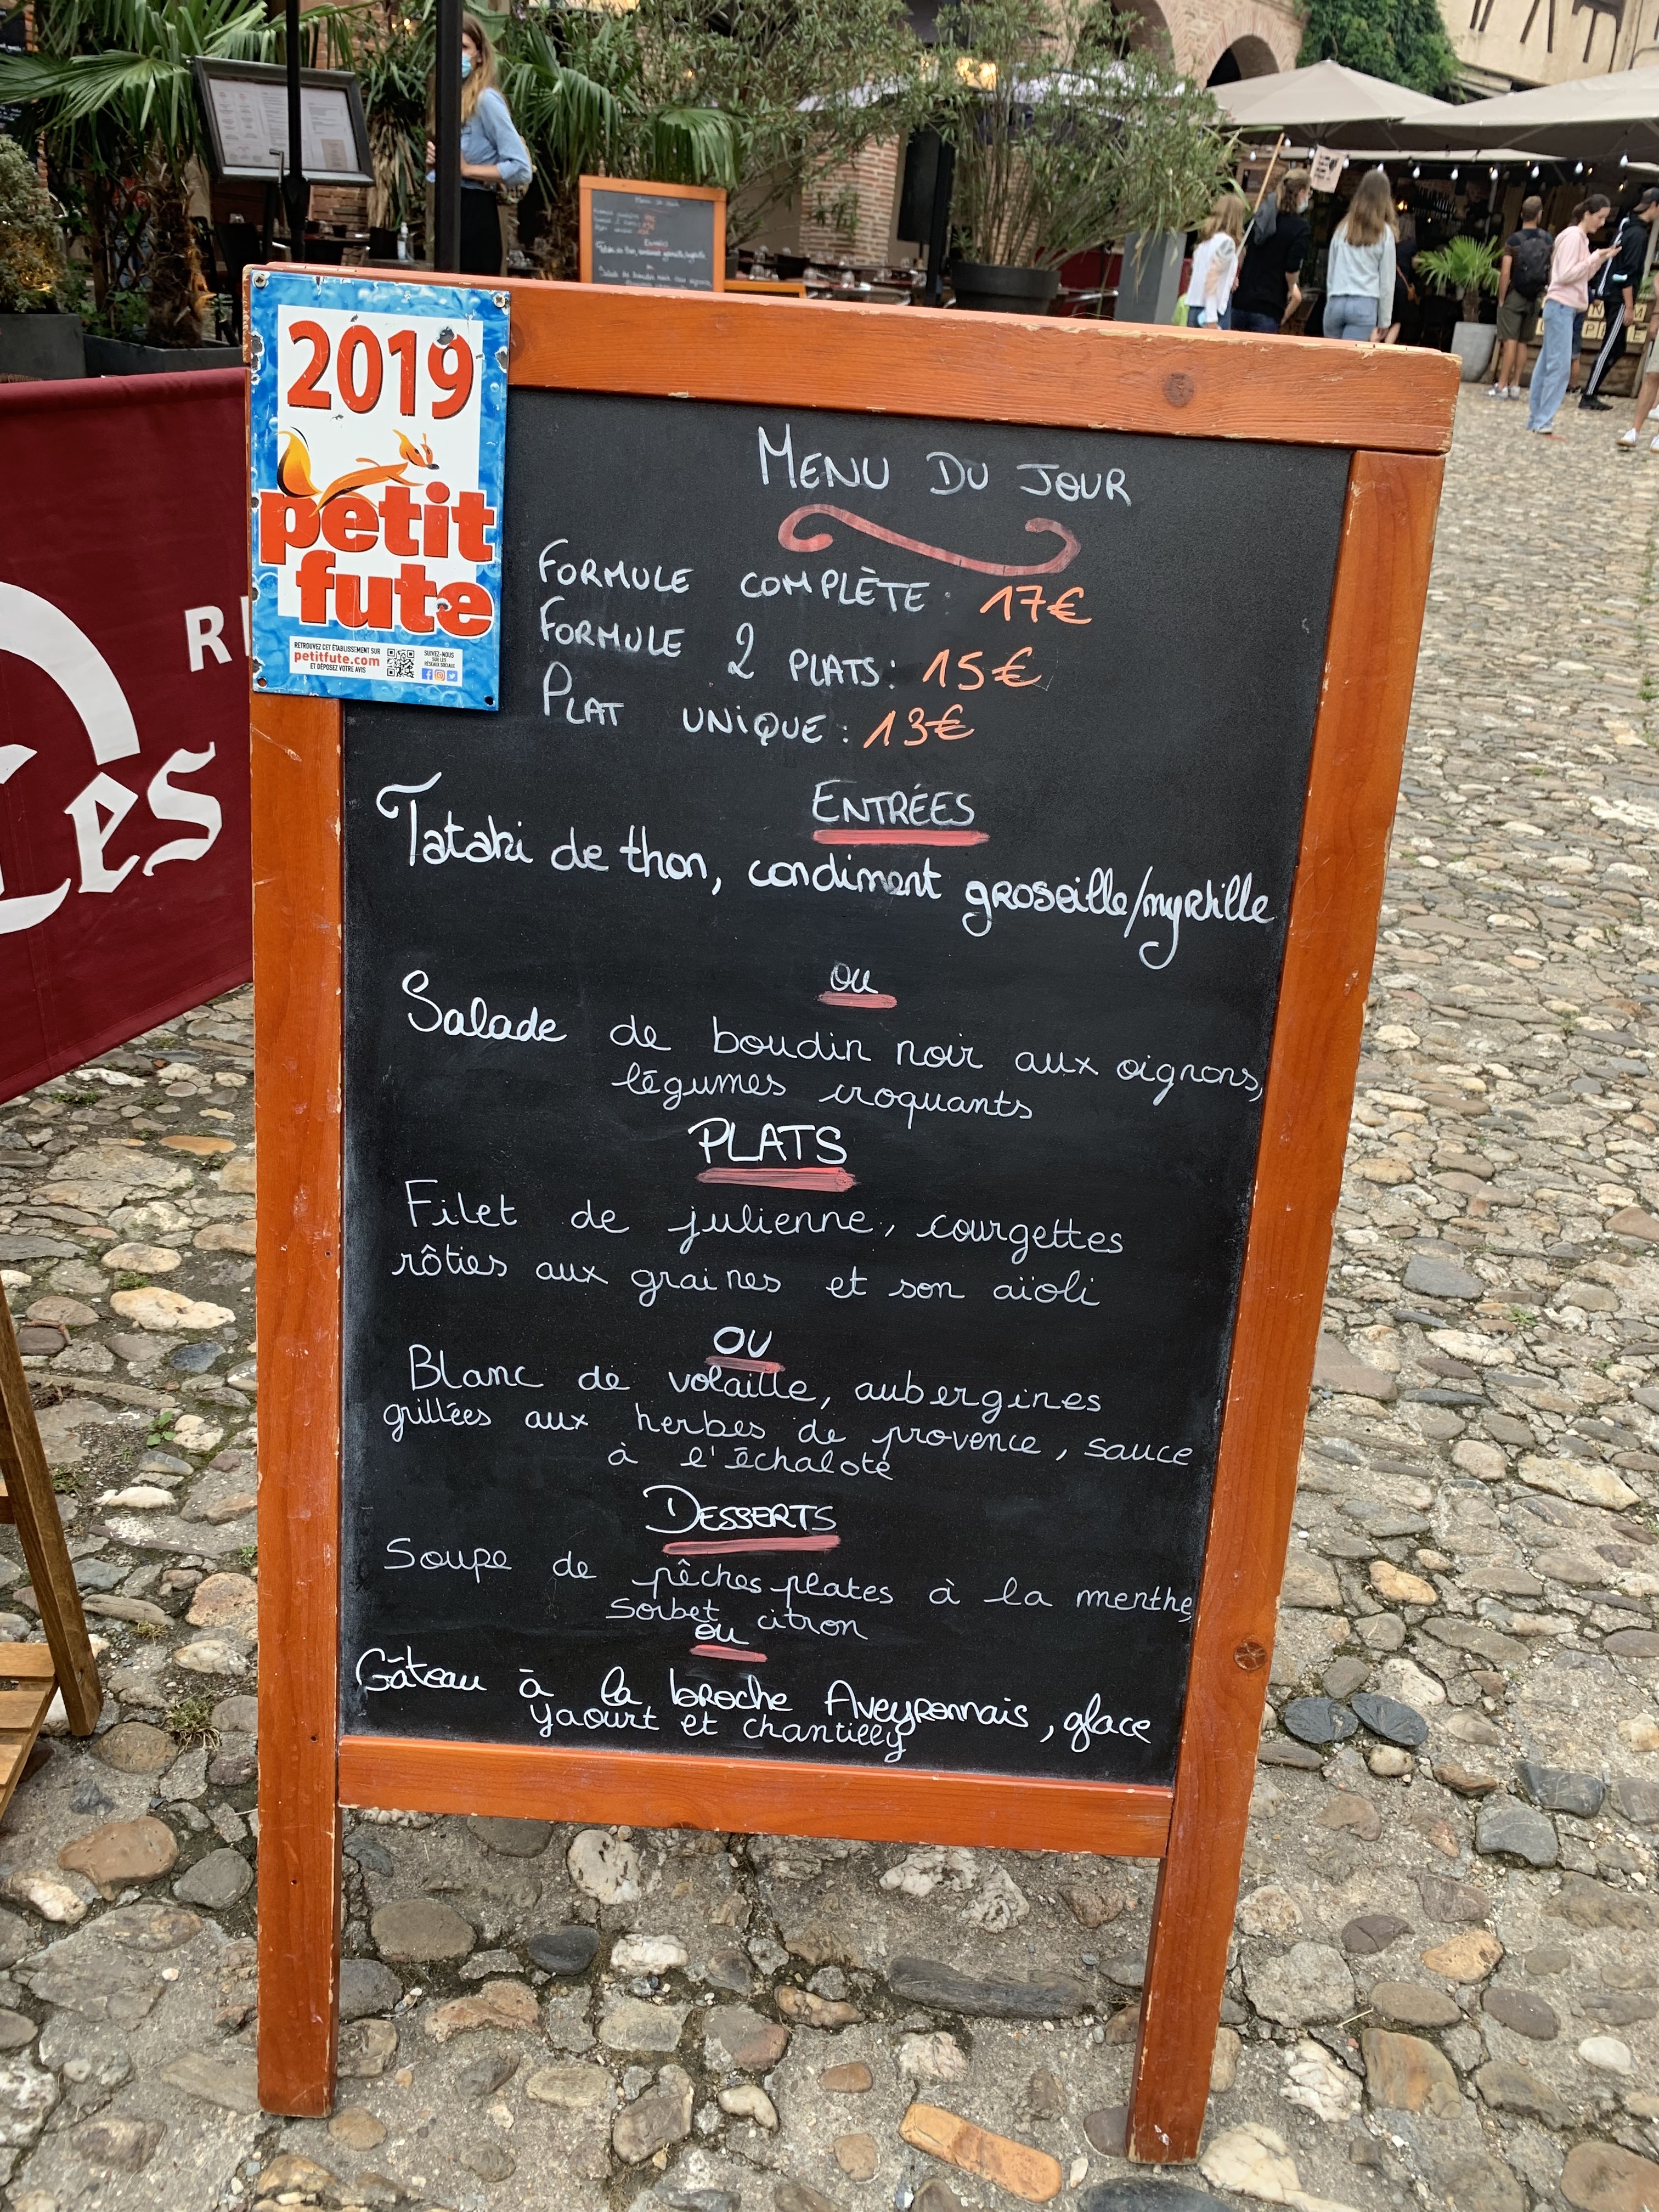 2019
petit
fute
RETROUVEZ CET ÉTABLISSEMENT SUR
petitfute.com
ET DÉPOSEZ VOTRE AVIS
SUIVEZ-NOUS
SUR LES
RÉSEAUX SOCIAUX
R
Les
MENU DU JOUR
FORMULE COMPLÈTE: 17€
FORMULE 2 PLATS: 15€
PLAT UNIQUE: 13€
ENTRÉES
Tataki de thon, condiment groseille/myrtille
ou
Salade de boudin noir aux oignons,
légumes croquants
PLATS
Filet de julienne, courgettes
rôties aux graines et son aïoli
OU
Blanc de volaille, aubergines
grillées aux herbes de provence, sauce
à l'échalote
DESSERTS
Soupe de pêches plates à la menthe,
sorbet citron
ou
Gâteau à la broche Aveyronnais, glace
yaourt et chantilly